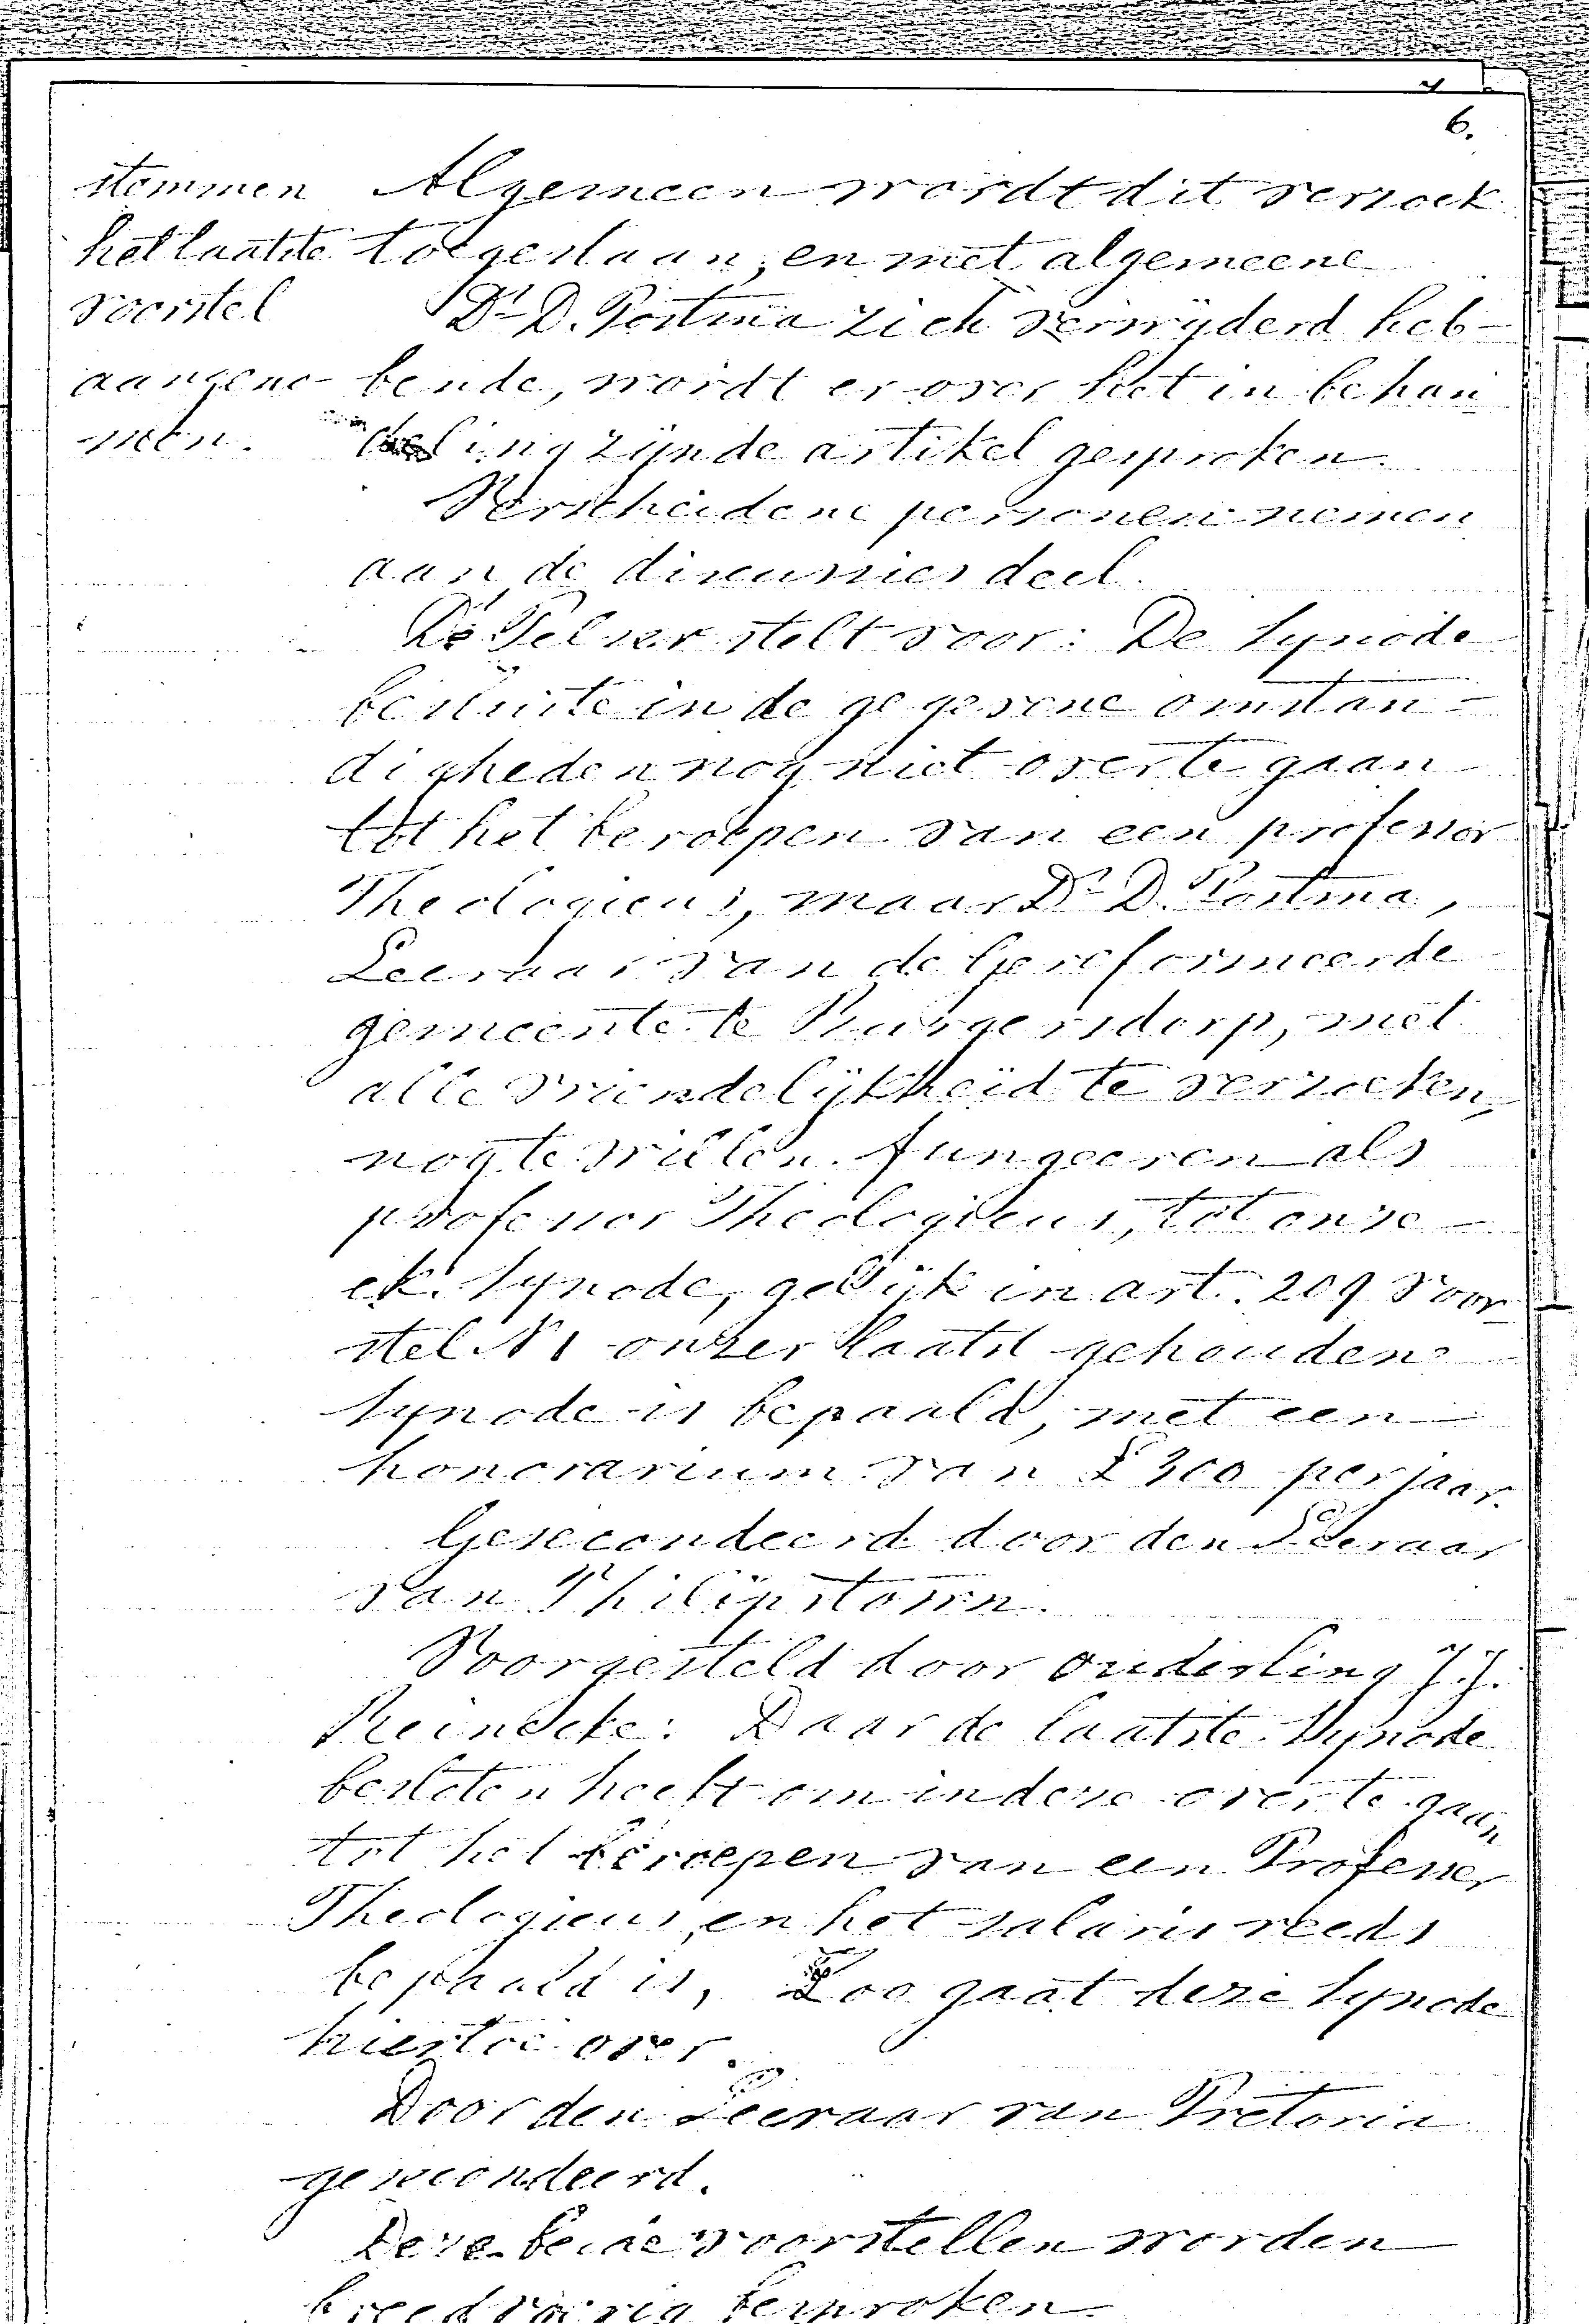 6.
stemmen Algemeen wordt dit verzoek
het laatste toegestaan, en met algemeene
voorstel Ds D. Postma zich verwijderd heb-
aangeno- bende, wordt er over het in behan
men. deling zijnde artikel gesproken.
Verscheidene personen nemen
aan de discussies deel.
Ds Pelser stelt voor: De Synode
besluite in de gegevene omstan-
digheden nog niet over te gaan
tot het beroepen van een professor
Theologicus, maar Ds D. Postma,
Leeraar van de Gereformeerde
gemeente te Burgersdorp, met
alle vriendelijkheid te verzoeken,
nog te willen fungeeren als
professor Theologicus, tot onze
ek. Synode, gelijk in art. 209 Voor-
stel N1 onzer laatst gehouden
Synode is bepaald, met een
honorarium van £300 per jaar.
Gesecondeerd door den Leeraar
van Philipstown.
Voorgesteld door ouderling J.J.
Reinecke: Daar de laatste Synode
besloten heeft om in deze over te gaan
tot het beroepen van een Professor
Theologicus, en het salaris reeds
bepaald is, Zoo gaat deze Synode
hiertoe over.
Door den Leeraar van Pretoria
gesecondeerd.
Deze beide voorstellen worden
breedvoerig besproken.